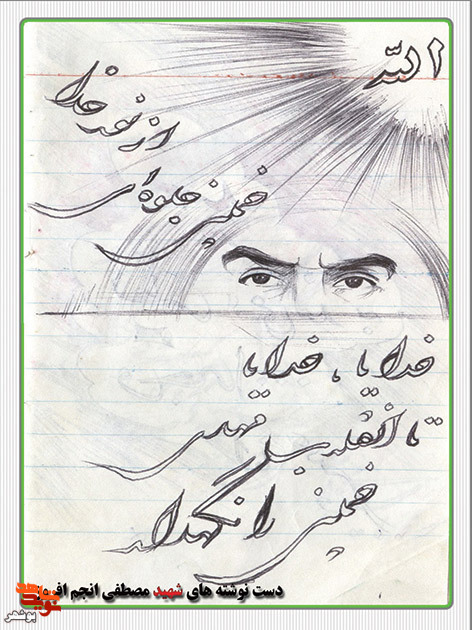 الله
خمینی جلوه‌ای
از نور خدا
خدایا ، خدایا
تا انقلاب مهدی
خمینی را نگهدار
دست نوشته های شهید مصطفی انجم افروز
بوشهر